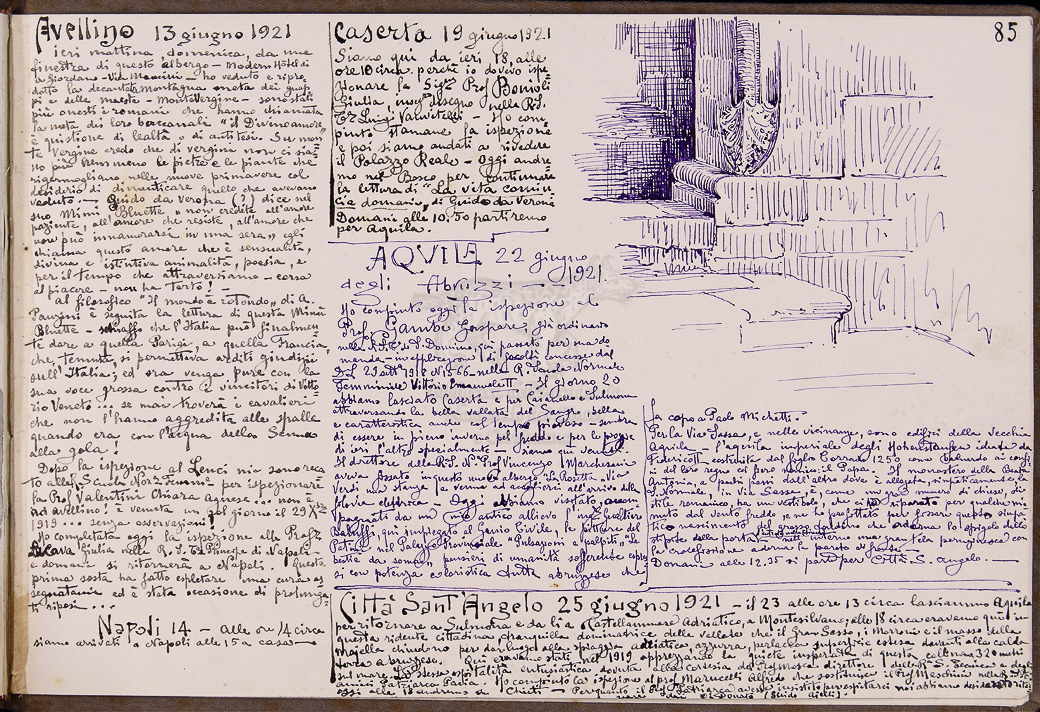 85
Avellino 13 giugno 1921
ieri mattina, domenica, da una
finestra di questo albergo - Modern Hôtel di
Giordano - Via Mancini - ho veduto e ripro-
detto la decantata montagna meta dei guap-
pi e delle maeste - Montevergine - sono stati
più onesti i romani che hanno chiamata
la meta dei loro baccanali "il Divino amore
è quistione di lealtà o di antitesi. Su
Vergine credo che di vergini non ci sia-
no più nemmeno le pietre e le piante che
rigermogliano nelle nuove primavere col
desiderio di dimenticare quello che avevano
veduto. - Guido da Verona (?) dice nel
suo Mimi Bluette "non credete all'amore
paziente, all'amore che resiste, all'amore che
non può innamorarsi in una sera" egli
chiama questo amore che è sensualità,
divina e istintiva animalità, poesia, e
per il tempo che attraversiamo - corsa
al piacere - non ha torto! -
Al filosofico "Il mondo è rotondo" di A.
Panzini è seguita la lettura di questa Mimi
Bluette - che l'Italia può finalmen-
te dare a quella Parigi, a quella Francia,
che, temuta, si permetteva arditi giudizi
sull'Italia; ed ora venga pure con la
sua voce grossa contro i vincitori di Vitto-
rio Veneto ... se mai troverà i cavalieri
che non l'hanno aggredita alle spalle
quando era con l'acqua della Senna
alla gola!
Dopo la ispezione al Lenci mi sono reca-
to alla Scuola Norm. Femm. per ispezionare
la Prof. Valentini Chiara Agnese ... non è
ad Avellino! è venuta un sol giorno il 29
1919 ... senza osservazioni!
Ho completata oggi la ispezione alla Prof.
Lecava Giulia nella R. S. T. Principe di Napoli -
e domani si ritornerà a Napoli. Questa
prima sosta ha fatto espletare una cura as-
segnatami ed è stata occasione di prolunga-
ti riposi ...
Napoli 14 - alle ore 14 circa
siamo arrivati a Napoli alle 15 a casa -
Caserta 19 giugno 1921
Siamo qui da ieri 18, alle
ore 10 circa, perchè io dovevo ispe-
zionare la Prof. Bonoli
Giulia, disegno nella R. S.
Luigi Vanvitelli - Ho com-
piuto stamane la ispezione
e poi siamo andati a rivedere
il Palazzo Reale - Oggi andre-
mo nel Bosco per continuare
la lettura di "La vita comin-
cia domani" di Guido da Verona
Domani alle 10,50 partiremo
per Aquila.
AQUILA 22 giugno
1921
degli Abruzzi
Ho compiuto oggi la ispezione al
Prof. Gambi Gaspare, già ordinario
nella S. Domino, qui passato per sua do-
manda - in applicazione di facoltà concesse dal
1918 N 1566 - nella R. Scuola Normale
Femminile Vittorio Emanuele II - Il giorno 20
abbiamo lasciato Caserta e per Caianello e Sulmona
attraversando la bella vallata del Sangro, bella
e caratteristica anche col tempo piovoso - sembra
di essere in pieno inverno pel freddo e per le piogge
di ieri l'altro specialmente - siamo qui venuti.
Il direttore della R. S. N. Prof Vincenzo Marchesani
aveva fissato in questo nuovo albergo "La Rosetta" - Via
Verdi una stanza e venne ad accoglierci all'arrivo della
elettrica - Oggi abbiamo visitato, accom-
pagnati da un mio antico allievo l'ing Gualtiero
qui impiegato al Genio Civile, le pitture del
Patini nel Palazzo Provinciale "Pulsazioni e palpiti", "Le
bestie da soma", pensieri di umanità sofferente espres-
si con potenza coloristica tutta abruzzese che
fa capo a Paolo Michetti -
Per la Via Sassa, e nelle vicinanze, sono edifici della vecchia
Aquila - l'aquila imperiale degli Hohenstaufen ideata da
Federico II costruita dal figlio Corrado 1250 come baluardo ai confi-
ni del loro regno col fiero nemico: il Papa. Il monastero della Beata
Antonia, a pochi passi dall'altro dove è allegata, simpaticamente la
S. Normale, in Via Sassa, è, come un gran numero di chiese, di
stile romanico, nel vestibolo che ci riparava per qualche mo-
mento dal vento freddo ne ho profittato per fissare questo simpa-
tico nascimento del grosso cordone che adorna lo spigolo dello
stipite della porta, internamente una gran tela peruginesca con
la crocefissione adorna la parete di fondo -
Domani alle 12.35 si parte per Città S. Angelo -
Città Sant'Angelo 25 giugno 1921 - il 23 alle ore 13 circa lasciammo Aquila
per ritornare a Sulmona e da lì a Castellammare Adriatico, a Montesilvano; alle 18 circa eravamo qui in
questa ridente cittadina, tranquilla dominatrice delle vallate che il Gran Sasso, i Morroni e il masso della
Majella chiudono per dar luogo alla spiaggia adriatica, azzurra, perlacea, sempre estesa davanti alla calda
terra abruzzese. Qui eravamo stati nel 1919 apprezzando la quiete insperata di questa collina a 320 metri
sul mare. La stessa ospitalità entusiastica dovuta alla cortesia del Prof Mosca direttore della R. S. Tecnica e degli
amici Patriarca Paola. Ho compiuto la ispezione al prof Marucelli Alfredo che sostituisce il Prof Meschini nella R.
oggi alle 18 andremo a Chieti -